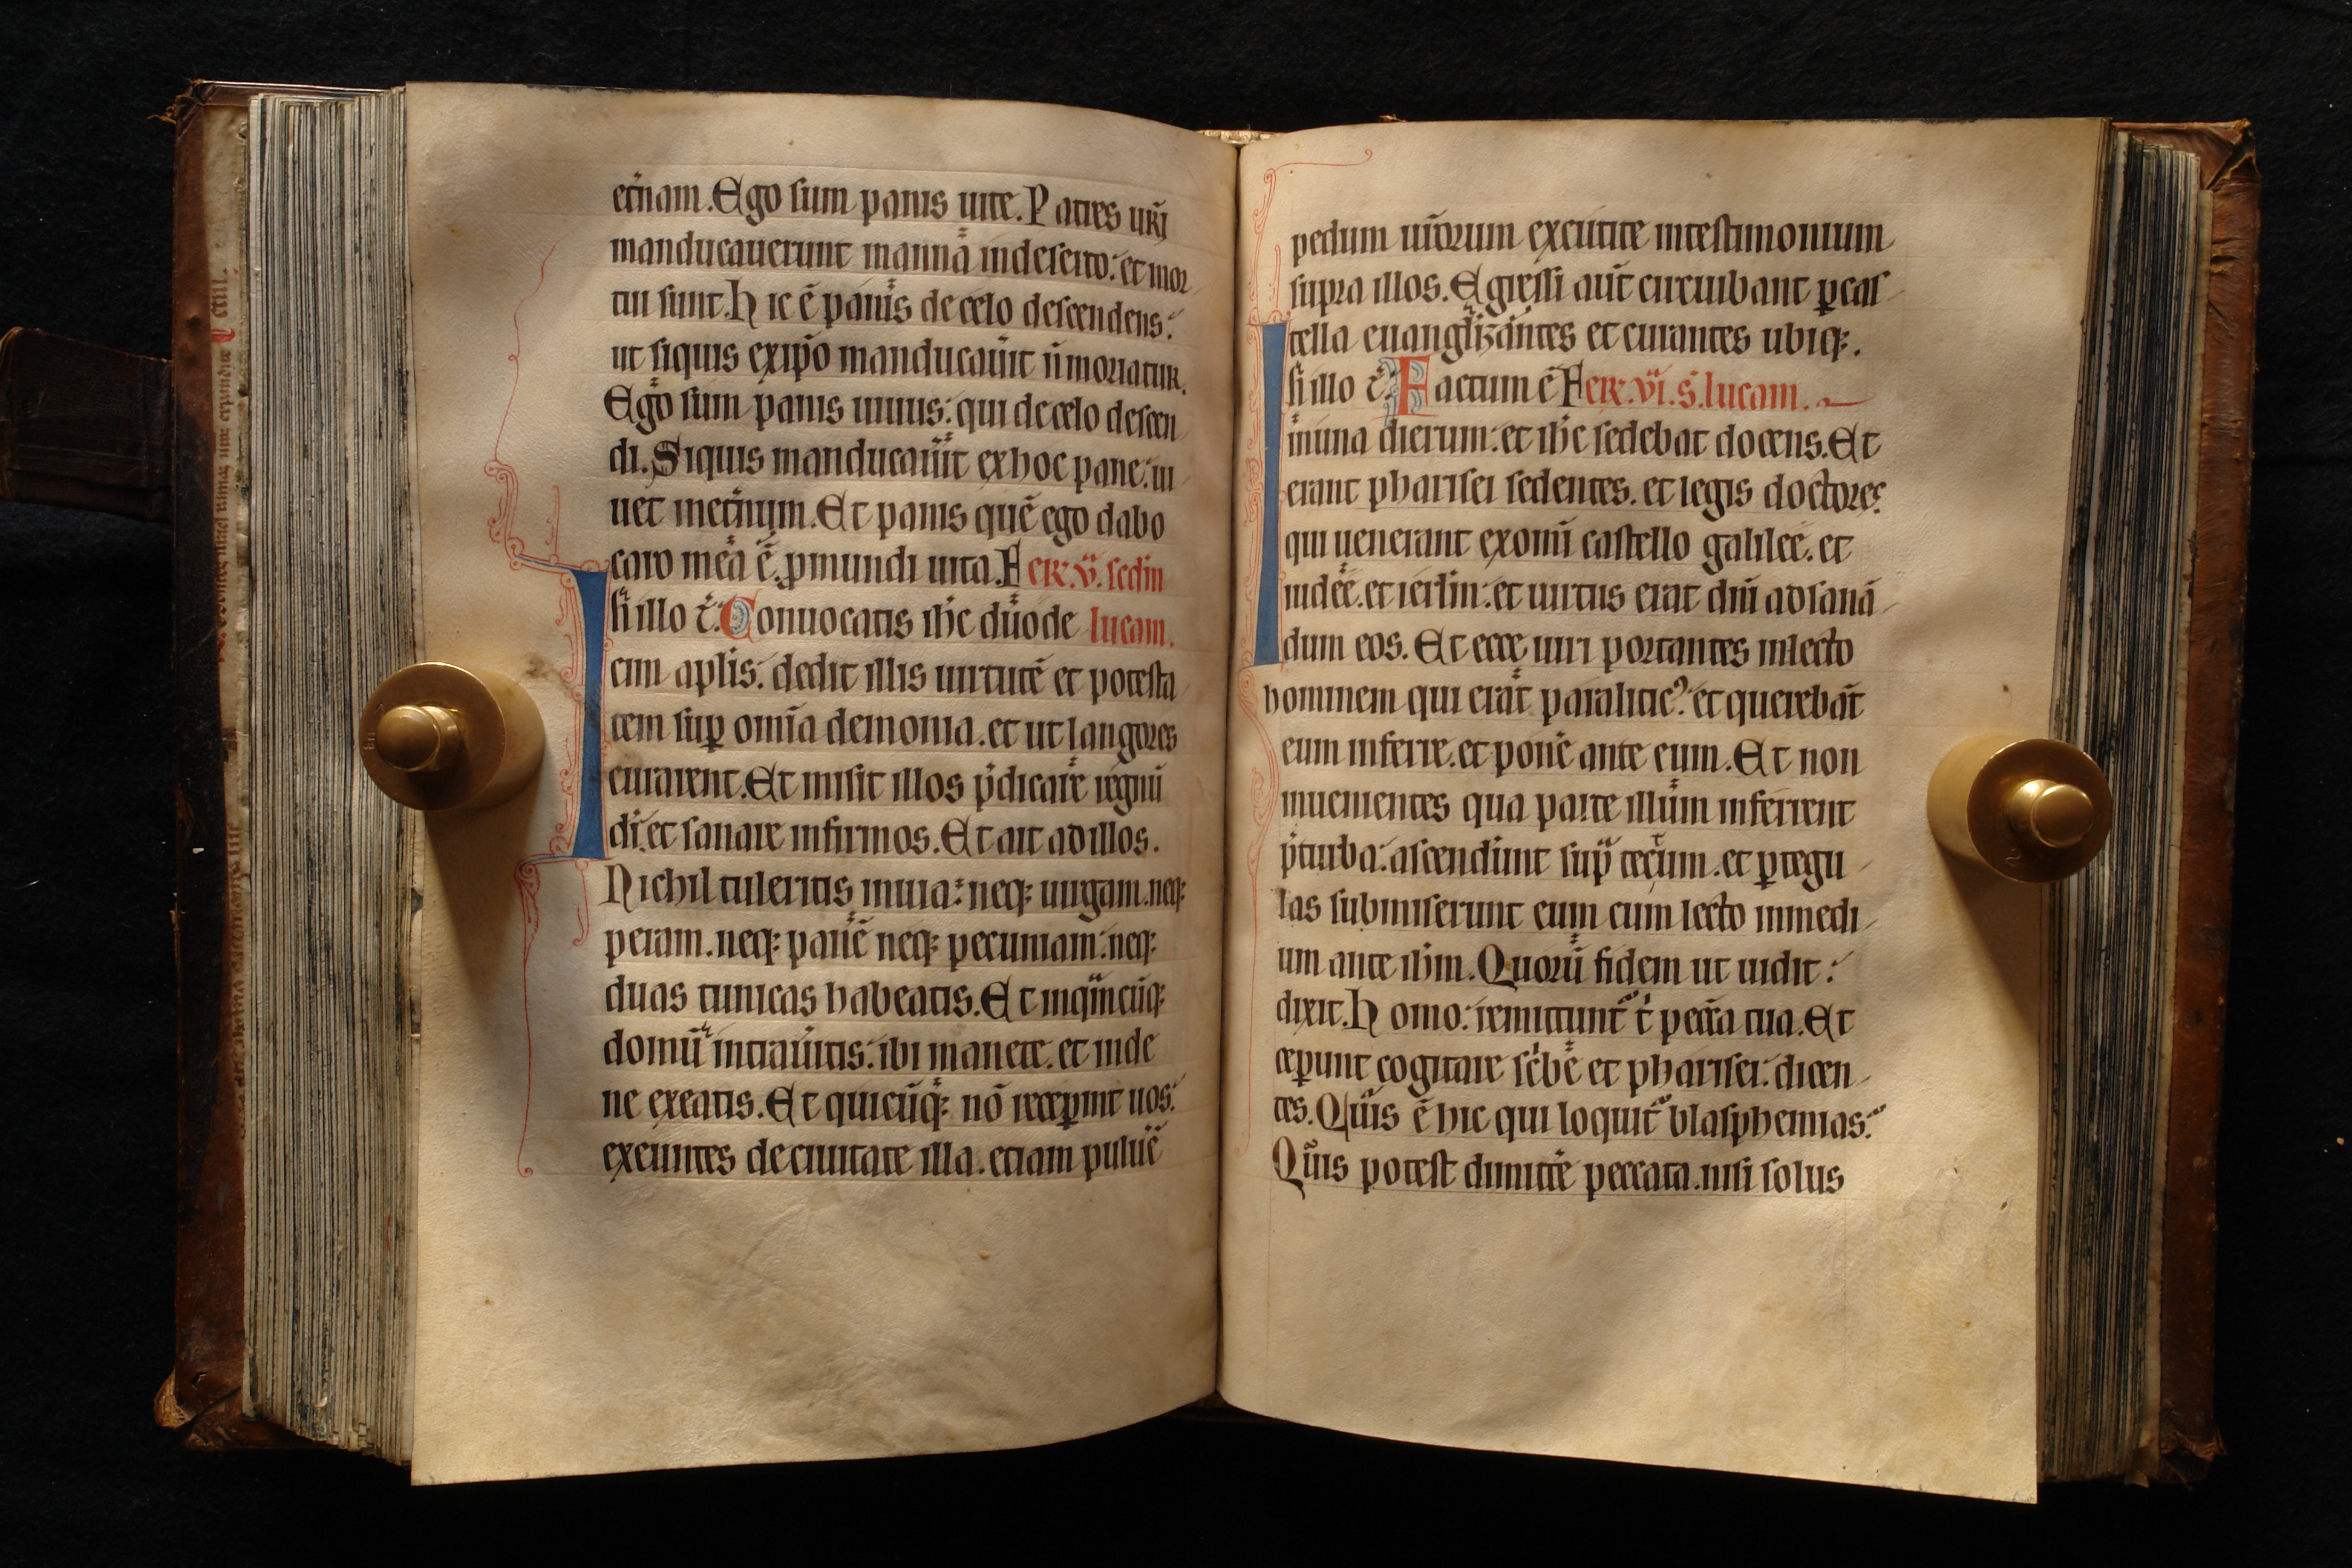 et̄nam. Ego sum panis uite. Patres ur̄i
manducauerunt manna in deserto: et mor
tui sunt. Hic ē panis de celo descendens:
ut siquis ex ip̄o manducau̇it n̄ moriatur.
Ego sum panis uiuus: qui de celo descen
di. Siquis manducau̇it ex hoc pane: ui
uet inet̄num. Et panis quē ego dabo
caro mea ē. ꝓ mundi uita. Fer̄. v. scd̄m
In illo t̄. Conuocatis ih̄c duode lucam.
cim apl̄is: dedit illis uirtutē et potesta
tem suꝑ om̄ia demonia. et ut langores
curarent. Et misit illos p̄dicare regnū
dī. et sanare infirmos. Et ait ad illos.
Nichil tuleritis in uia: neqꝫ uirgam. neqꝫ
peram. neqꝫ panē neqꝫ pecuniam: neqꝫ
duas tunicas habeatis. Et in qm̄cūqꝫ
domū intrau̇itis: ibi manete. et inde
ne exeatis. Et quicūqꝫ nō receꝑint uos:
exeuntes de ciuitate illa. etiam puluē
pedum ur̄orum excutite in testimonium
supra illos. Egressi aut̄ circuibant ꝑ cas
tella euangl̄izantes et curantes ubiqꝫ.
In illo t̄. Factum ē Fer̄. vi. s. lucam.
in una dierum: et ih̄c sedebat docens. Et
erant pharisei sedentes. et legis doctores
qui uenerant ex om̄i castello galilee. et
iudee. et ierl̄m: et uirtus erat dn̄i ad sanā
dum eos. Et ecce uiri portantes in lecto
hominem qui erat paraliticꝰ: et querebāt
eum inferre. et pon̄e ante eum. Et non
inuenientes qua parte illum inferrent
p̄ turba: ascendūnt sup̄ tectum. et ꝑ tegu
las submiserunt eum cum lecto in medi
um ante ih̄m. Quorū fidem ut uidit:
dixit. Homo: remittunt᷑ t̄ pecc̄a tua. Et
ceꝑunt cogitare sc̄be et pharisei: dicen
tes. Quis ē hic qui loquit᷑ blasphemias:
Quis potest dimitt̄e peccata. nisi solus